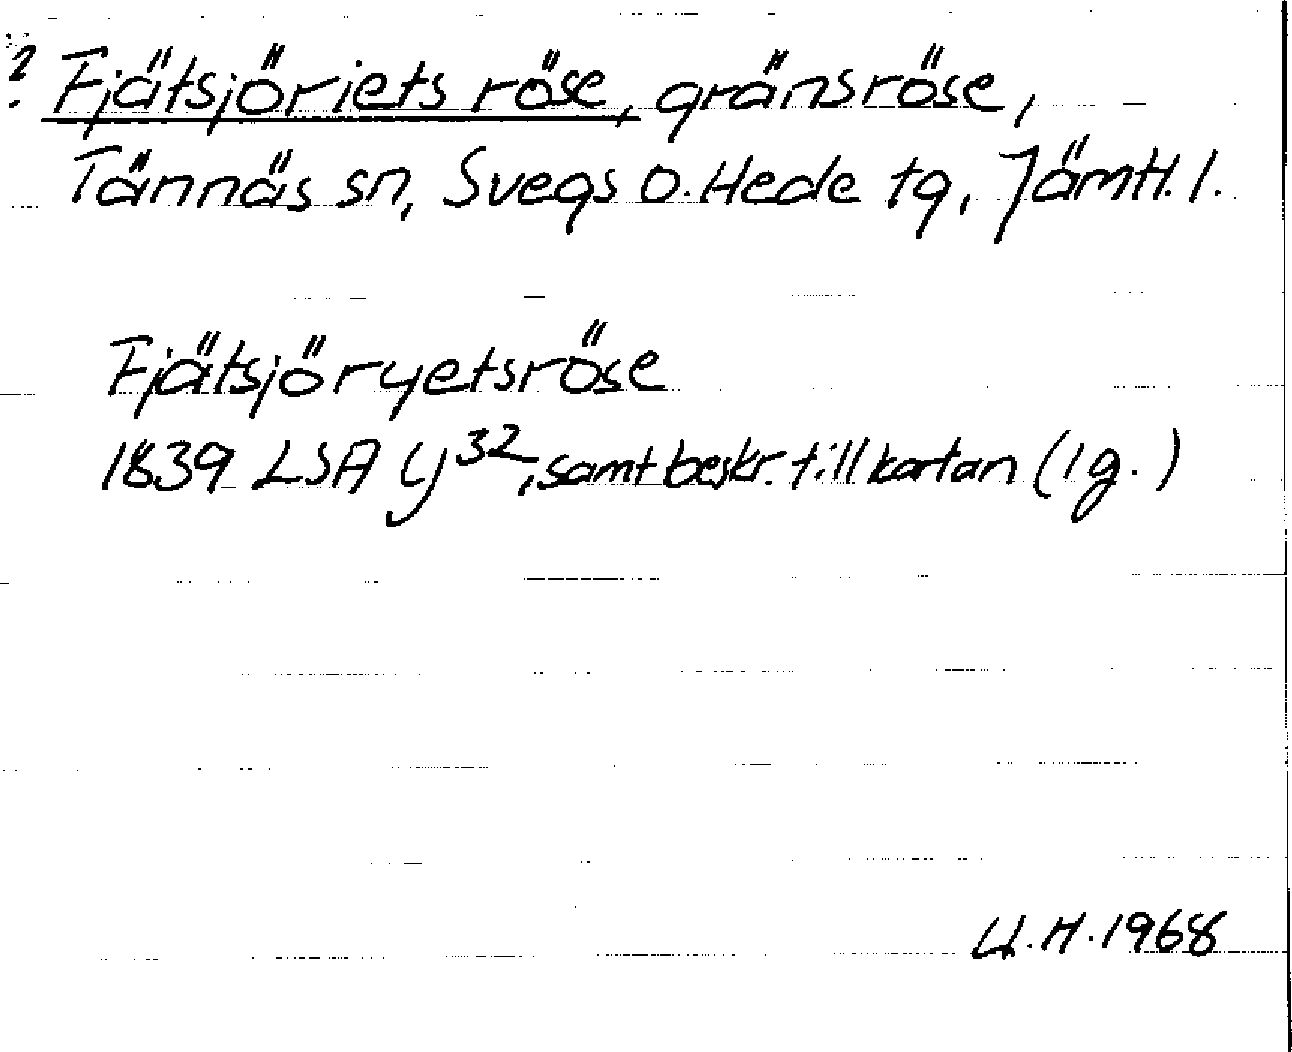 ? Fjätsjöriets röse, gränsröse,
Tännäs sn, Svegs o. Hede tg, Jämtl. l.
Fjätsjöryetsröse
1839 LSA y 32, samt beskr. till kartan (1g.)
U.H. 1968